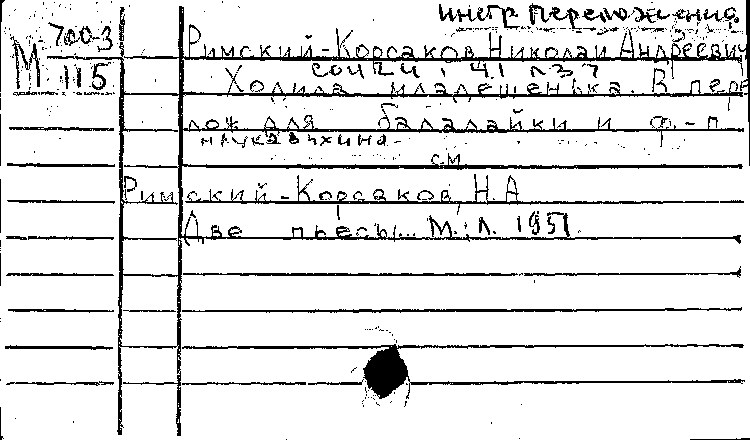 инстр переложения.
М 700-3
115
Римский-Корсаков Николай Андреевич
соч 24, ч.1 № 37
Ходила младешенька. В пере
лож для балалайки и ф.-п
см
Римский-Корсаков, Н.А
Две пьесы... М.; Л. 1951.